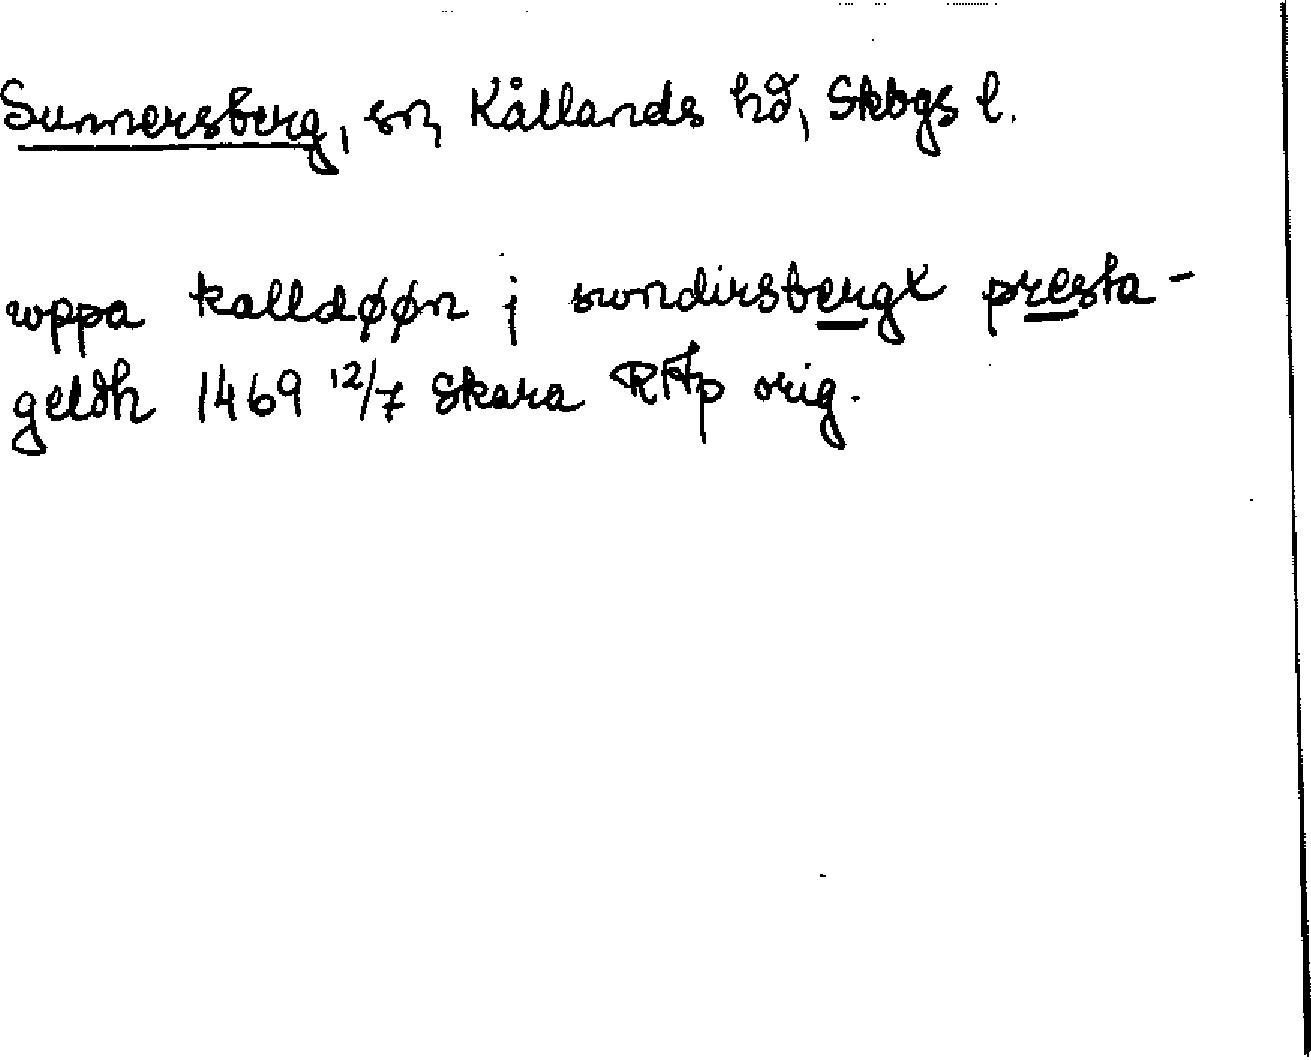 Sunnersberg, sn, Kållands hd, Skbgs l.
wppa kalldøøn j swndirsbergx presta-
geldh 1469 12/7 Skara RAp orig.